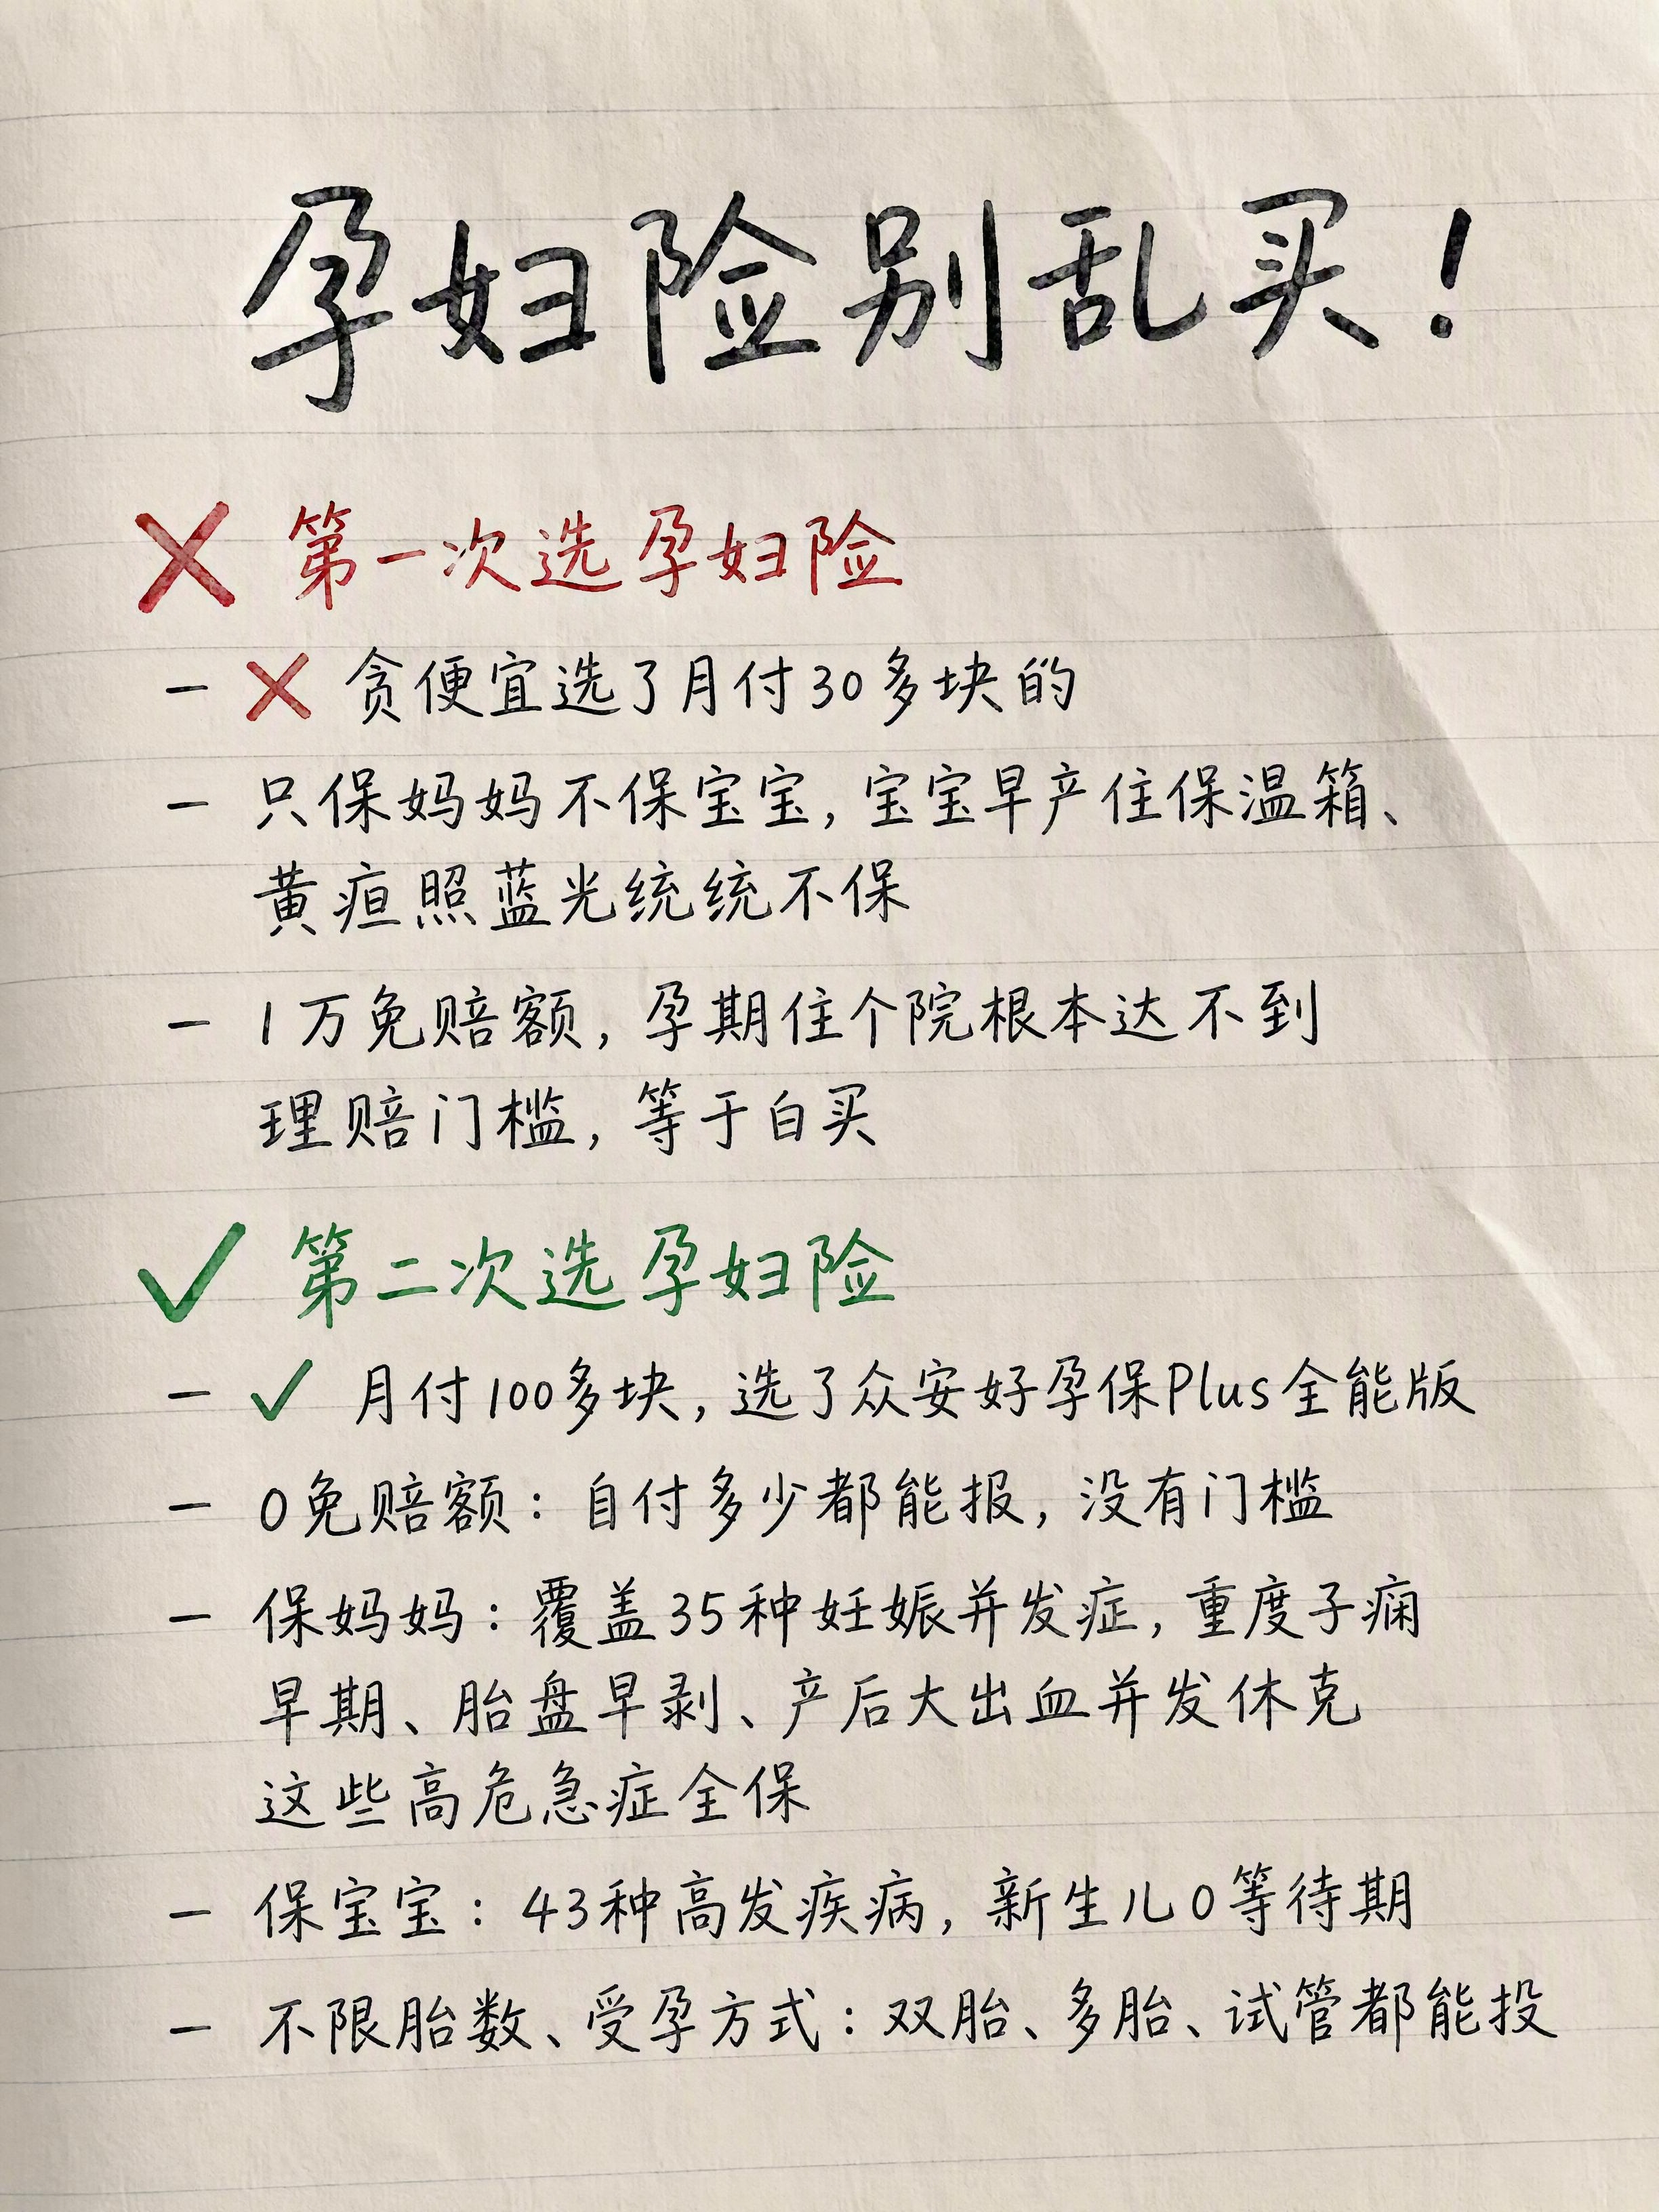 孕妇险别乱买！
❌ 第一次选孕妇险
- ❌ 贪便宜选了月付30多块的
- 只保妈妈不保宝宝，宝宝早产住保温箱、
黄疸照蓝光统统不保
- 1万免赔额，孕期住个院根本达不到
理赔门槛，等于白买
✓ 第二次选孕妇险
- ✓ 月付100多块，选了众安好孕保Plus全能版
- 0免赔额：自付多少都能报，没有门槛
- 保妈妈：覆盖35种妊娠并发症，重度子痫
早期、胎盘早剥、产后大出血并发休克
这些高危急症全保
- 保宝宝：43种高发疾病，新生儿0等待期
- 不限胎数、受孕方式：双胎、多胎、试管都能投